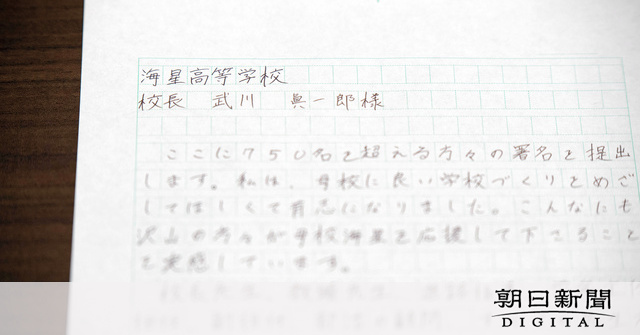 海星高等学校
校長　武川　眞一郎様
ここに750名を超える方々の署名を提出
します。私は、母校に良い学校づくりをめざ
してほしくて有志になりました。こんなにも
沢山の方々が母校海星を応援して下さること
を実感しています。
朝日新聞
DIGITAL